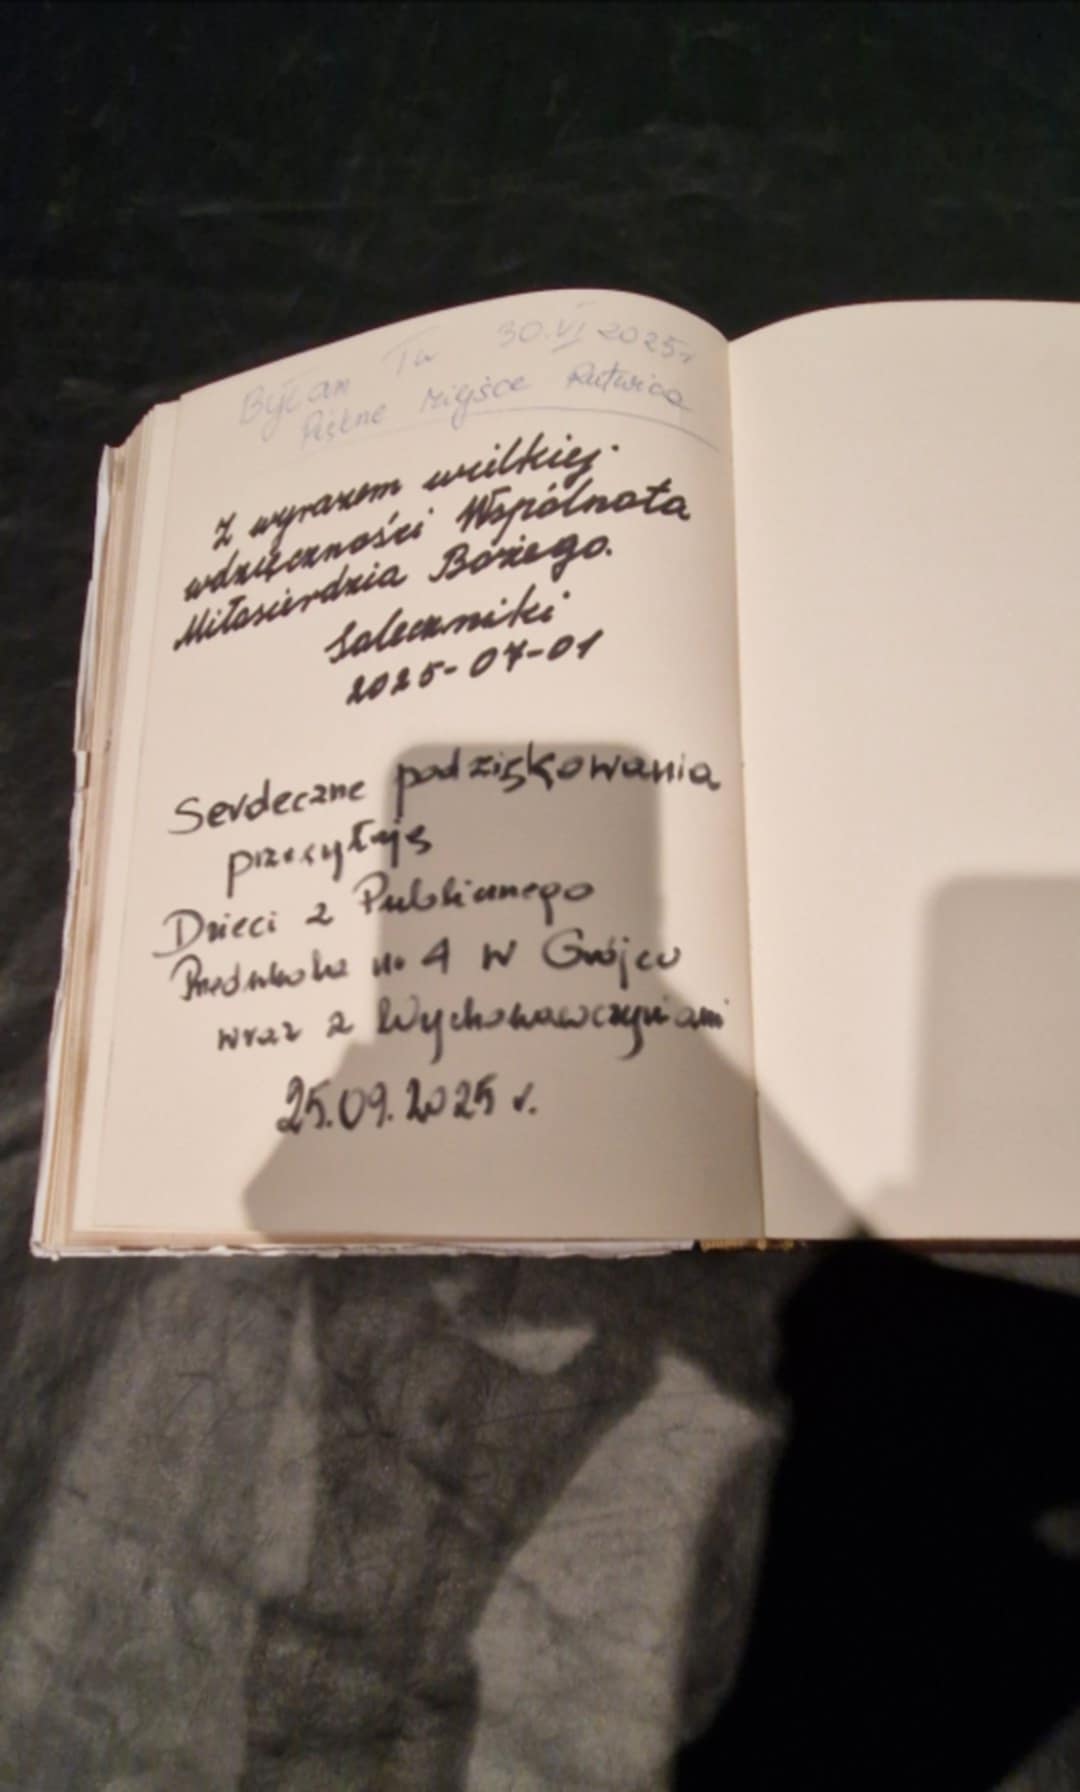 Byłam Tu 30.VI 2025r
Piękne Miejsce
Z wyrazem wielkiej
wdzięczności Wspólnota
Miłosierdzia Bożego.
Soleczniki
2025-07-01
Serdeczne podziękowania
przesyłają
Dzieci z Publicznego
Przedszkola nr 4 w Grójcu
wraz z Wychowawczyniami
25.09.2025 r.